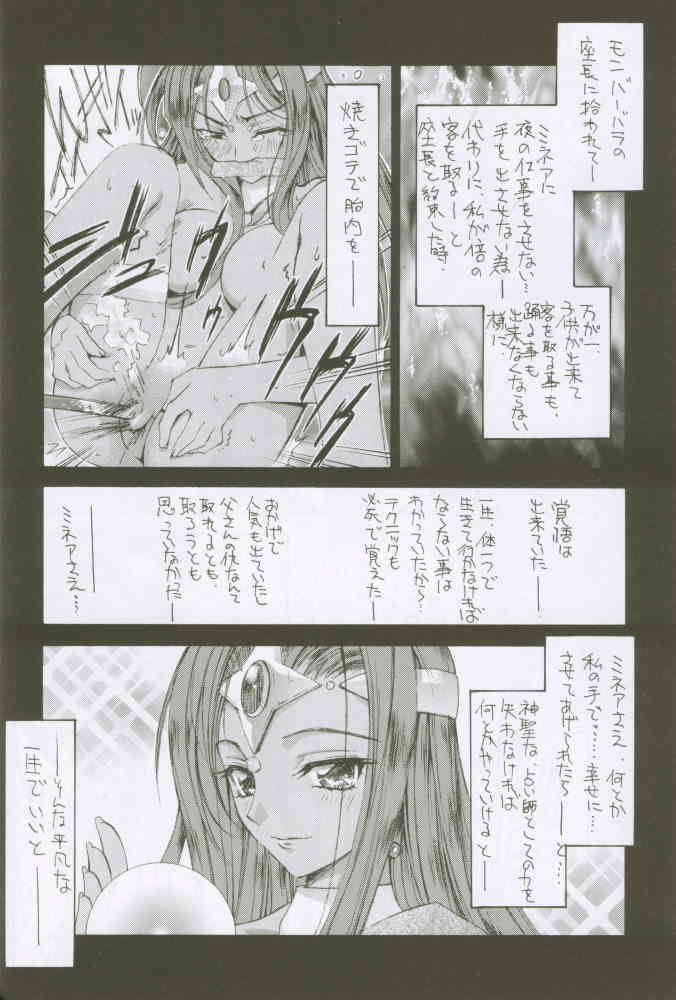 モンバーバラの
座長に拾われて―
ミネアに
夜の仕事をさせない…
手を出させない為―
代わりに、私が倍の
客を取る―と
座長と約束した時、
万が一、
子供が出来て
客を取る事も、
踊る事も
出来なくならない
様に…
焼きゴテで胎内を――
覚悟は
出来ていた――
一生、体一つで
生きて行かなければ
ならない事は
わかっていたから…
テクニックも
必死で覚えた―
おかげで
人気も出ていたし
父さんの仇なんて
取れるとも、
取ろうとも
思っていなかった―
――
ミネアさえ…
ミネアさえ、何とか
私の手で……幸せに…
させてあげられたら―と…
神聖な、占い師としての力を
失わなければ
何とかやっていけると―
――そんな平凡な
一生でいいと――